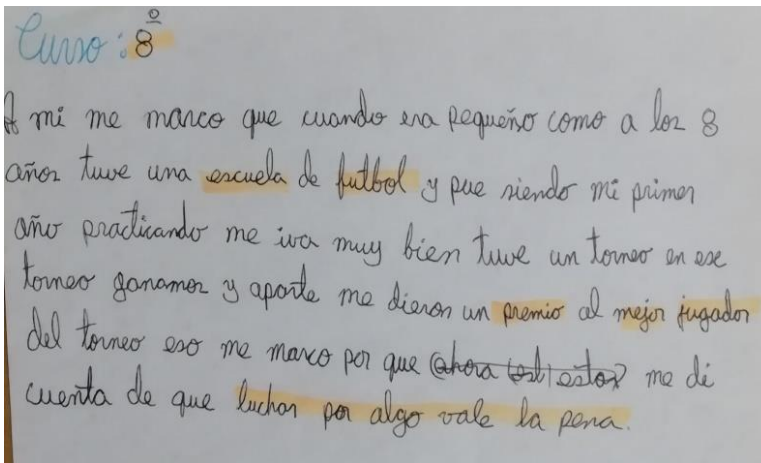 Curso: 8º
A mi me marco que cuando era pequeño como a los 8
años tuve una escuela de futbol y pue siendo mi primer
año practicando me iva muy bien tuve un torneo en ese
torneo ganamos y aparte me dieron un premio al mejor jugador
del torneo eso me marco por que me di
cuenta de que luchar por algo vale la pena.